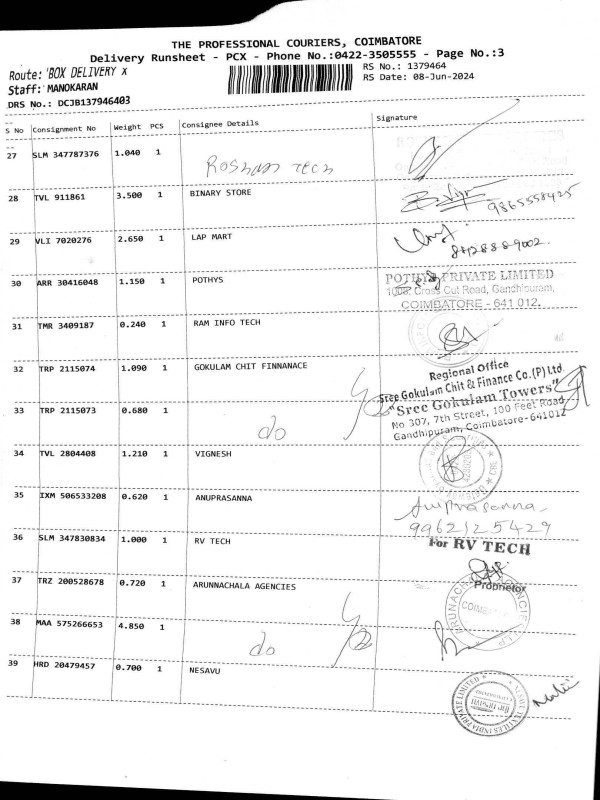 THE PROFESSIONAL COURIERS, COIMBATORE
Delivery Runsheet - PCX - Phone No.:0422-3505555 - Page No.:3
Route: 'BOX DELIVERY x
RS No.: 1379464
Staff: MANOKARAN
RS Date: 08-Jun-2024
DRS No.: DCJB137946403
S No Consignment No Weight PCS Consignee Details Signature
27 SLM 347787376 1.040 1 Roshan Tech
28 TVL 911861 3.500 1 BINARY STORE
9865558425
29 VLI 7020276 2.650 1 LAP MART
30 ARR 30416048 1.150 1 POTHYS
POTHYS PRIVATE LIMITED
Cross Cut Road, Gandhipuram,
COIMBATORE - 641 012.
31 TMR 3409187 0.240 1 RAM INFO TECH
32 TRP 2115074 1.090 1 GOKULAM CHIT FINNANACE
Regional Office
Sree Gokulam Chit & Finance Co.(P) Ltd.
"Sree Gokulam Towers"
No 307, 7th Street, 100 Feet Road
Gandhipuram, Coimbatore-641012
33 TRP 2115073 0.680 1 do
34 TVL 2804408 1.210 1 VIGNESH
35 IXM 506533208 0.620 1 ANUPRASANNA Anuprasanna
9962125429
36 SLM 347830834 1.000 1 RV TECH
For RV TECH
Proprietor
37 TRZ 200528678 0.720 1 ARUNNACHALA AGENCIES
38 MAA 575266653 4.850 1 do
39 HRD 20479457 0.700 1 NESAVU